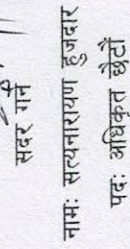 सदर गर्ने
नामः सत्यनारायण हुजदार
पदः अधिकृत छैटौं